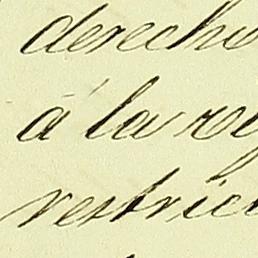 derecho
á la re
restric